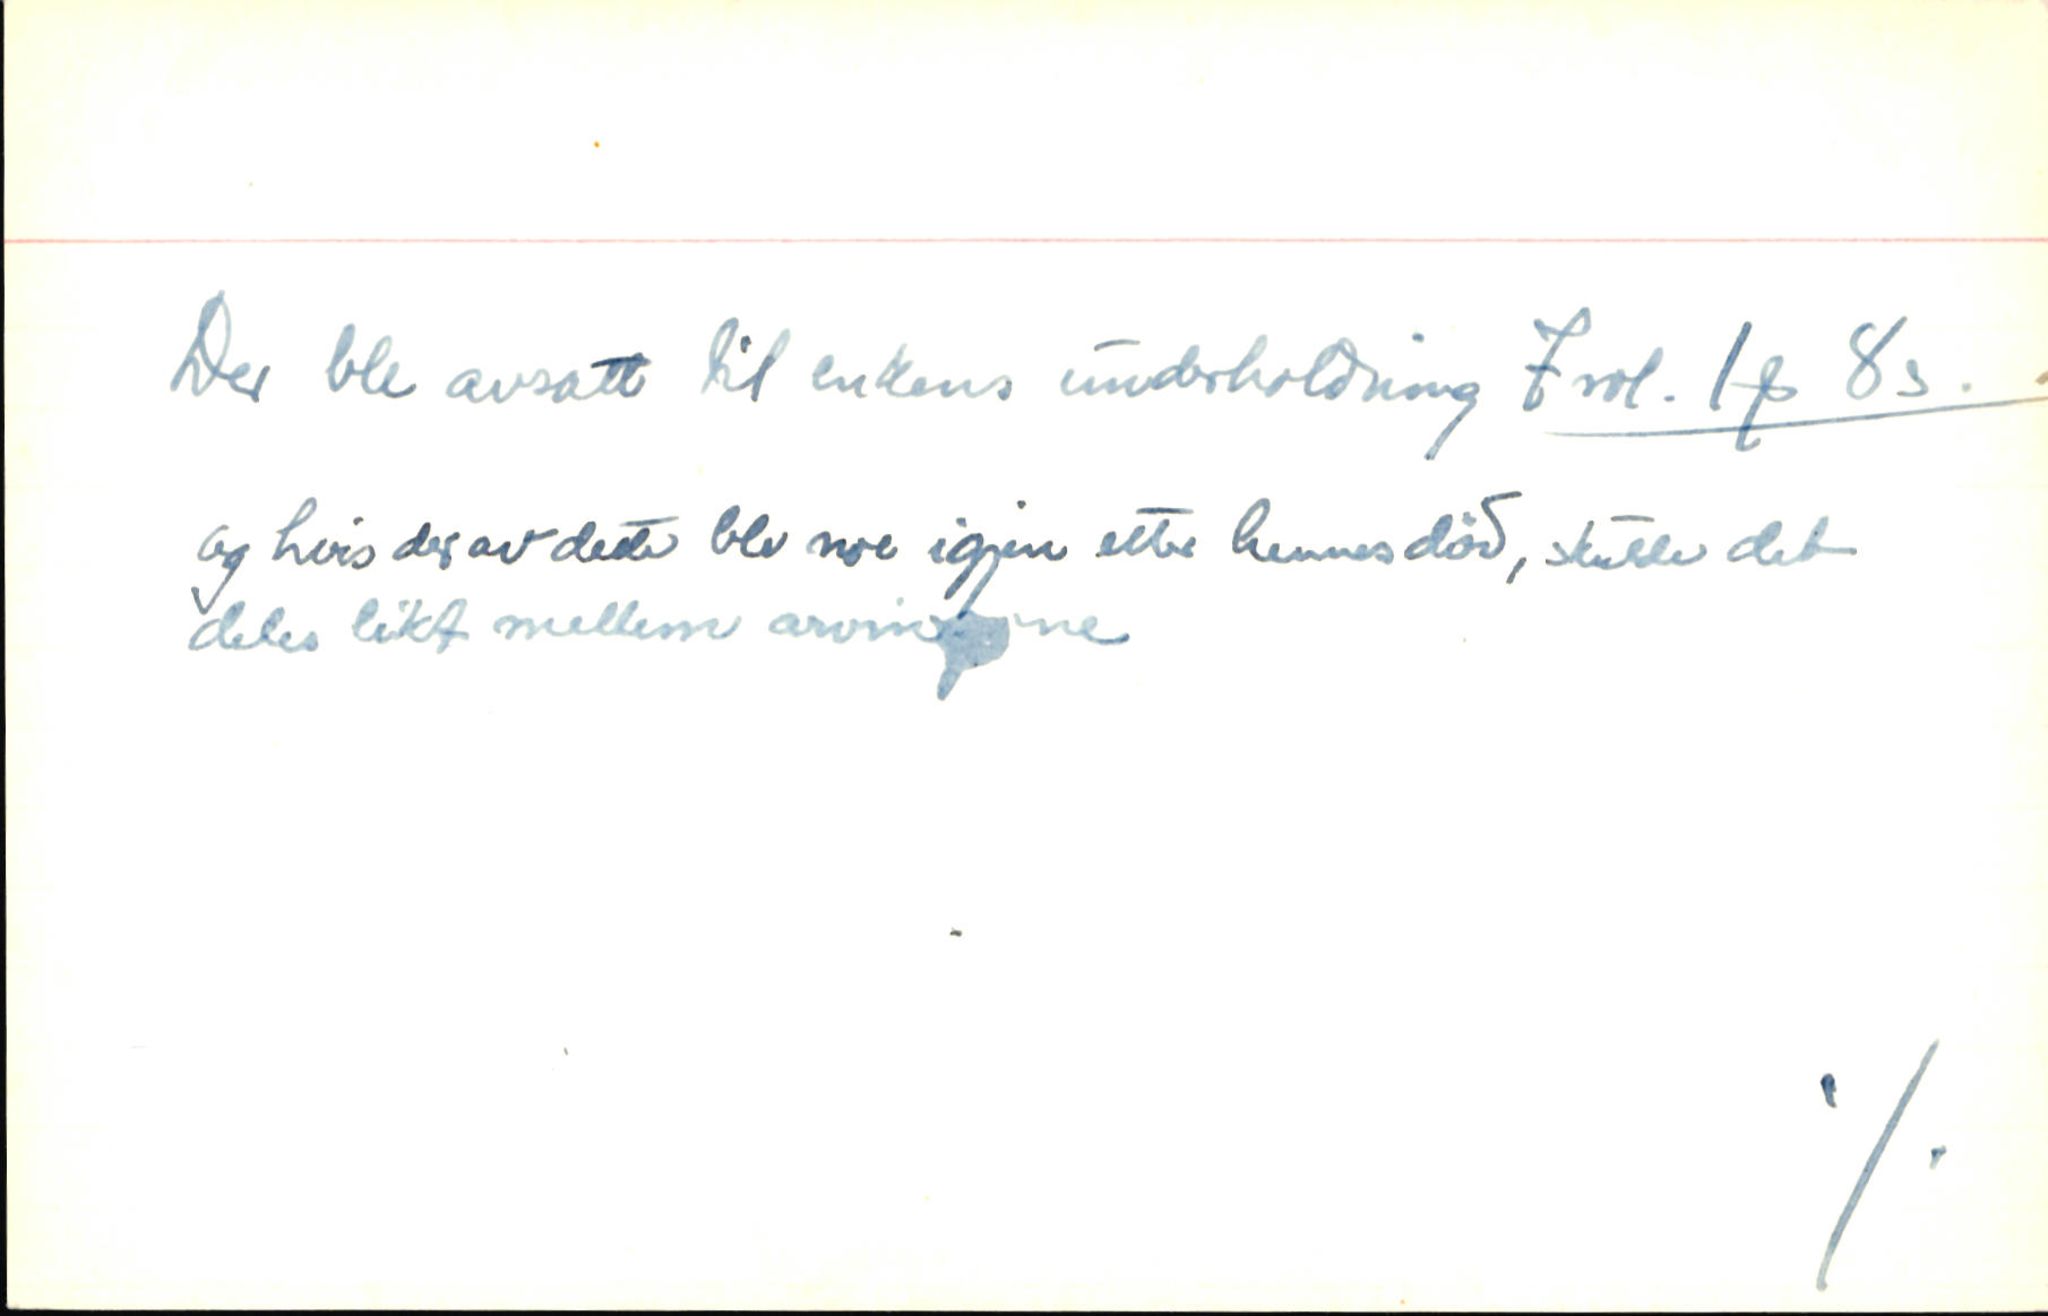 Der ble avsatt til enkens underholdning 7 rdl. 1 ℔ 8 s.
og hvis der av dette ble noe igjen etter hennes död, skulle det
deles likt mellem arvingene
./.